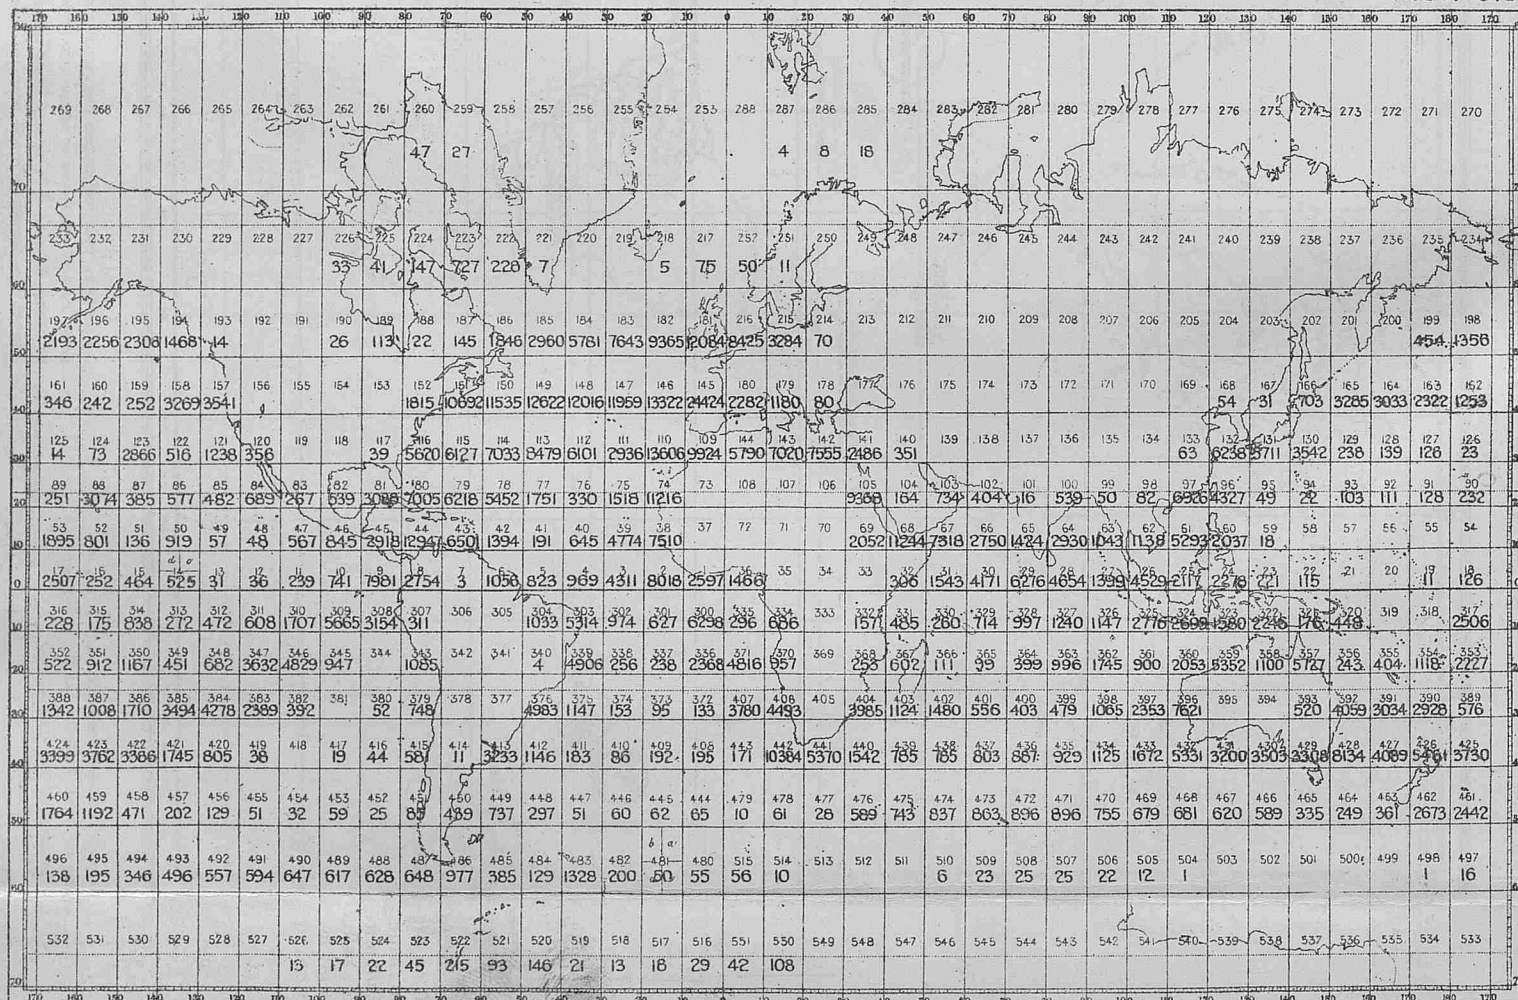 170 160 150 140 130 120 110 100 90 80 70 60 50 40 30 20 10 0 10 20 30 40 50 60 70 80 90 100 110 120 130 140 150 160 170 180 170
269 268 267 266 265 264 263 262 261 260 259 258 257 256 255 254 253 288 287 286 285 284 283 282 281 280 279 278 277 276 275 274 273 272 271 270
47 27 4 8 18
70
233 232 231 230 229 228 227 226 225 224 223 222 221 220 219 218 217 252 251 250 249 248 247 246 245 244 243 242 241 240 239 238 237 236 235 234
33 41 147 727 228 7 5 75 50 11
60
197 196 195 194 193 192 191 190 189 188 187 186 185 184 183 182 181 216 215 214 213 212 211 210 209 208 207 206 205 204 203 202 201 200 199 198
2193 2256 2308 1468 14 26 113 22 145 1846 2960 5781 7643 9365 12084 8425 3284 70 454 1356
50
161 160 159 158 157 156 155 154 153 152 151 150 149 148 147 146 145 180 179 178 177 176 175 174 173 172 171 170 169 168 167 166 165 164 163 162
346 242 252 3269 3541 1815 10692 11535 12622 12016 11959 13322 24424 2282 1180 80 54 31 703 3285 3033 2322 1253
40
125 124 123 122 121 120 119 118 117 116 115 114 113 112 111 110 109 144 143 142 141 140 139 138 137 136 135 134 133 132 131 130 129 128 127 126
14 73 2866 516 1238 356 39 5620 6127 7033 8479 6101 2936 13606 9924 5790 7020 7555 2486 351 63 6238 5711 3542 238 139 126 23
30
89 88 87 86 85 84 83 82 81 80 79 78 77 76 75 74 73 108 107 106 105 104 103 102 101 100 99 98 97 96 95 94 93 92 91 90
251 3074 385 577 482 689 267 639 3088 7005 6218 5452 1751 330 1518 11216 9368 164 734 404 16 539 50 82 6926 4327 49 22 103 111 128 232
20
53 52 51 50 49 48 47 46 45 44 43 42 41 40 39 38 37 72 71 70 69 68 67 66 65 64 63 62 61 60 59 58 57 56 55 54
1895 801 136 919 57 48 567 845 2918 12947 6501 1394 191 645 4774 7510 2052 11244 7318 2750 1424 2930 1043 1138 5293 2037 18
10
17 16 15 14 13 12 11 10 9 8 7 6 5 4 3 2 1 36 35 34 33 32 31 30 29 28 27 26 25 24 23 22 21 20 19 18
2507 252 464 525 31 36 239 741 7981 2754 3 1056 823 969 4311 8018 2597 1466 306 1543 4171 6276 4654 1399 4529 2117 2278 221 115 11 126
0
316 315 314 313 312 311 310 309 308 307 306 305 304 303 302 301 300 335 334 333 332 331 330 329 328 327 326 325 324 323 322 321 320 319 318 317
228 175 838 272 472 608 1707 5665 3154 311 1033 5314 974 627 6298 296 686 1571 485 260 714 997 1240 1147 2776 2699 1580 2246 176 448 2506
10
352 351 350 349 348 347 346 345 344 343 342 341 340 339 338 337 336 371 370 369 368 367 366 365 364 363 362 361 360 359 358 357 356 355 354 353
522 912 1167 451 682 3632 4829 947 1085 4 4906 256 238 2368 4816 957 253 602 111 99 399 996 1745 900 2053 5352 1100 5727 243 404 1118 2227
20
388 387 386 385 384 383 382 381 380 379 378 377 376 375 374 373 372 407 406 405 404 403 402 401 400 399 398 397 396 395 394 393 392 391 390 389
1342 1008 1710 3494 4278 2389 392 52 748 4983 1147 153 95 133 3780 4493 3985 1124 1480 556 403 479 1065 2353 7621 520 4059 3034 2928 576
30
424 423 422 421 420 419 418 417 416 415 414 413 412 411 410 409 408 443 442 441 440 439 438 437 436 435 434 433 432 431 430 429 428 427 426 425
3399 3762 3386 1745 805 38 19 44 581 11 3233 1146 183 86 192 195 171 10384 5370 1542 785 785 803 887 929 1125 1672 5931 3200 3503 3308 8134 4089 5461 3730
40
460 459 458 457 456 455 454 453 452 451 450 449 448 447 446 445 444 479 478 477 476 475 474 473 472 471 470 469 468 467 466 465 464 463 462 461
1764 1192 471 202 129 51 32 59 25 89 439 737 297 51 60 62 65 10 61 28 589 743 837 863 896 896 755 679 681 620 589 335 249 361 2673 2442
50
b a
496 495 494 493 492 491 490 489 488 487 486 485 484 483 482 481 480 515 514 513 512 511 510 509 508 507 506 505 504 503 502 501 500 499 498 497
138 195 346 496 557 594 647 617 628 648 977 385 129 1328 200 50 55 56 10 6 23 25 25 22 12 1 1 16
60
532 531 530 529 528 527 526 525 524 523 522 521 520 519 518 517 516 551 550 549 548 547 546 545 544 543 542 541 540 539 538 537 536 535 534 533
13 17 22 45 215 93 146 21 13 18 29 42 108
70
170 160 150 140 130 120 110 100 90 80 70 60 50 40 30 20 10 0 10 20 30 40 50 60 70 80 90 100 110 120 130 140 150 160 170 180 170